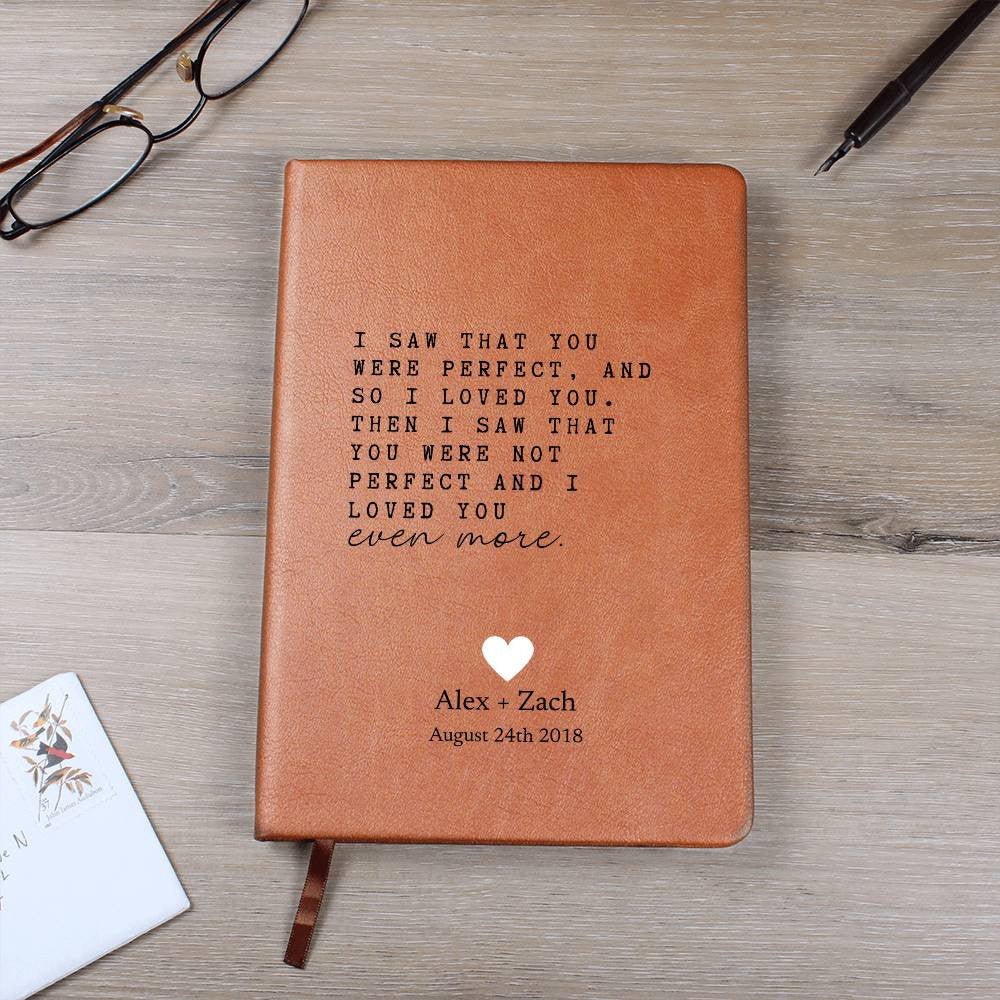 I SAW THAT YOU
WERE PERFECT, AND
SO I LOVED YOU.
THEN I SAW THAT
YOU WERE NOT
PERFECT AND I
LOVED YOU
even more.
Alex + Zach
August 24th 2018
37
John James Audubon
N